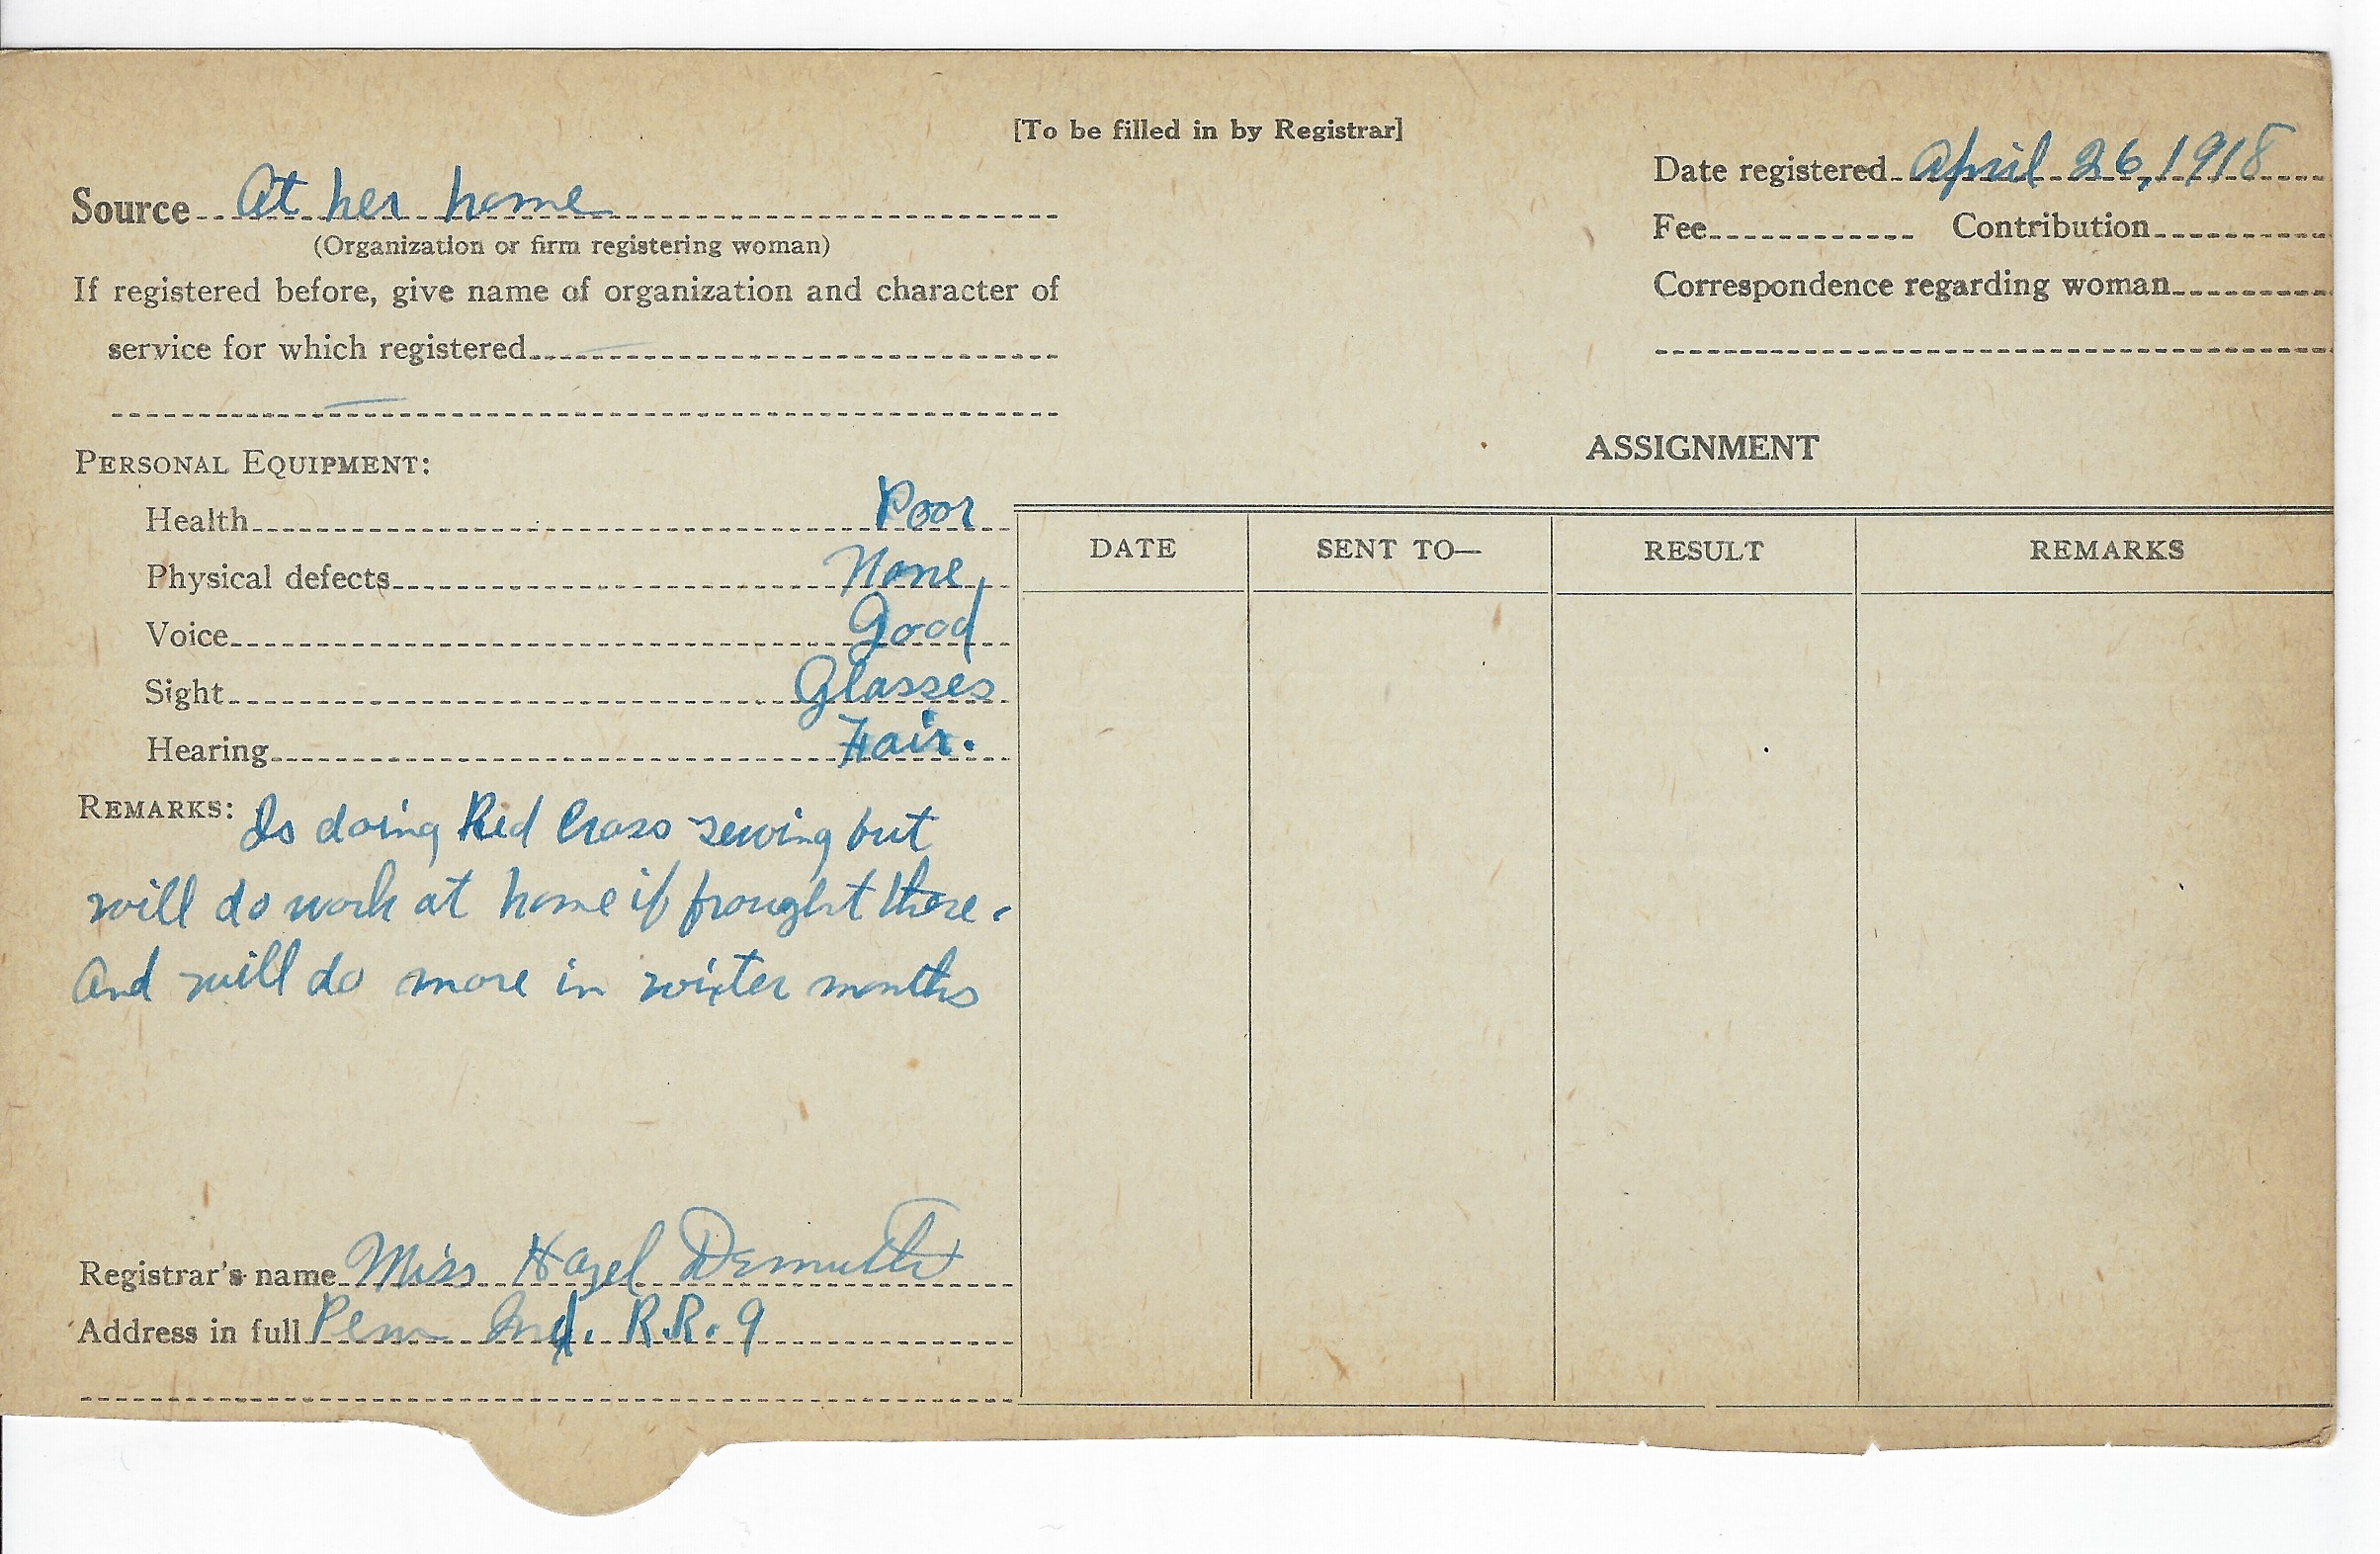 [To be filled in by Registrar]
Source At her home
(Organization or firm registering woman)
If registered before, give name of organization and character of
service for which registered
Date registered April 26, 1918
Fee Contribution
Correspondence regarding woman
PERSONAL EQUIPMENT:
Health Poor
Physical defects None
Voice Good
Sight Glasses
Hearing Fair.
REMARKS: Is doing Red Cross sewing but
will do work at home if brought there.
And will do more in winter months
Registrar's name Miss Hazel Demuth
Address in full Ind. R.R. 9
ASSIGNMENT
DATE SENT TO— RESULT REMARKS